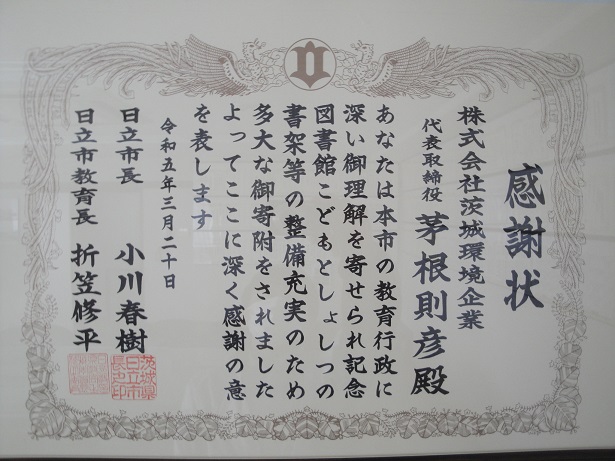 感謝状
株式会社茨城環境企業
代表取締役 茅根則彦殿
あなたは本市の教育行政に
深い御理解を寄せられ記念
図書館こどもとしょしつの
書架等の整備充実のため
多大な御寄附をされました
よってここに深く感謝の意
を表します
令和五年三月二十日
日立市長 小川春樹
日立市教育長 折笠修平
茨城県
日立市
長之印